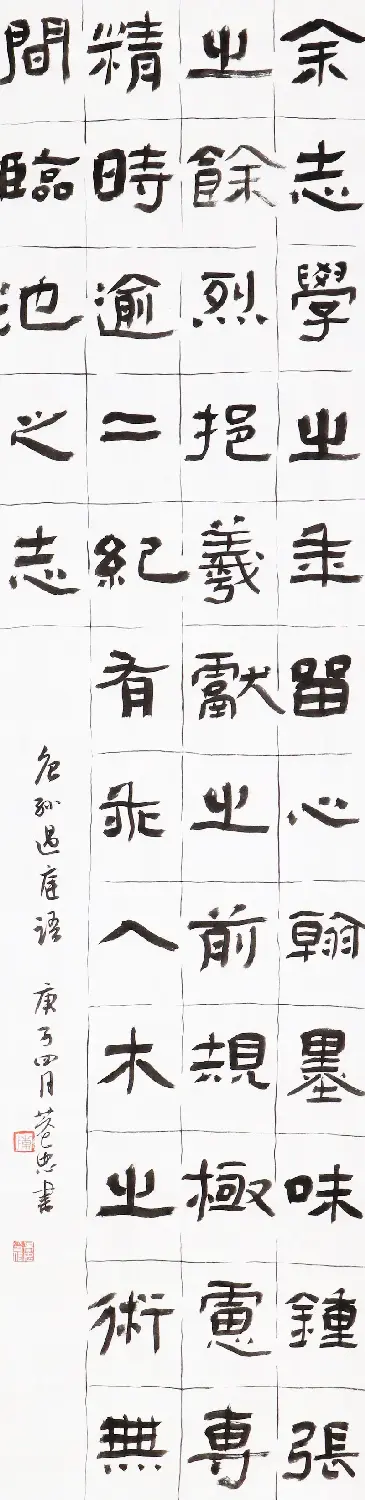 余志學之年留心翰墨味鍾張
之餘烈挹羲獻之前規極慮專
精時逾二紀有乖入木之術無
間臨池之志
孫過庭語 庚子四月 書